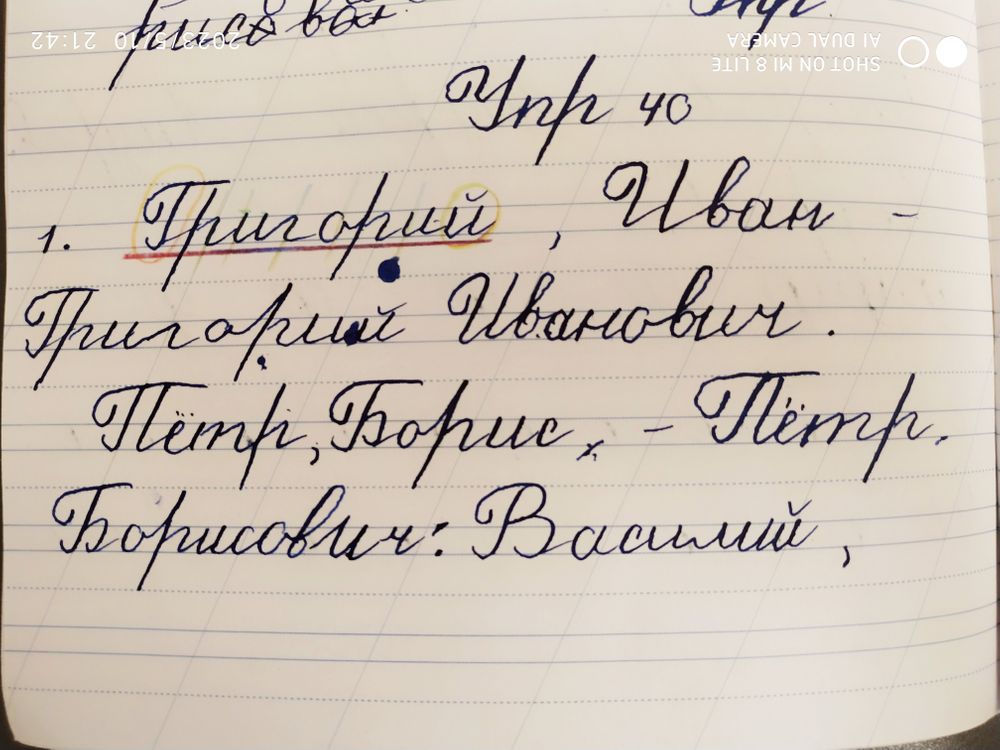 рисовал Упр.
Упр 40
1. Григорий, Иван -
Григорий Иванович.
Пётр, Борис, - Пётр.
Борисович: Василий,
SHOT ON MI 8 LITE
AI DUAL CAMERA
2023/5/10 21:42